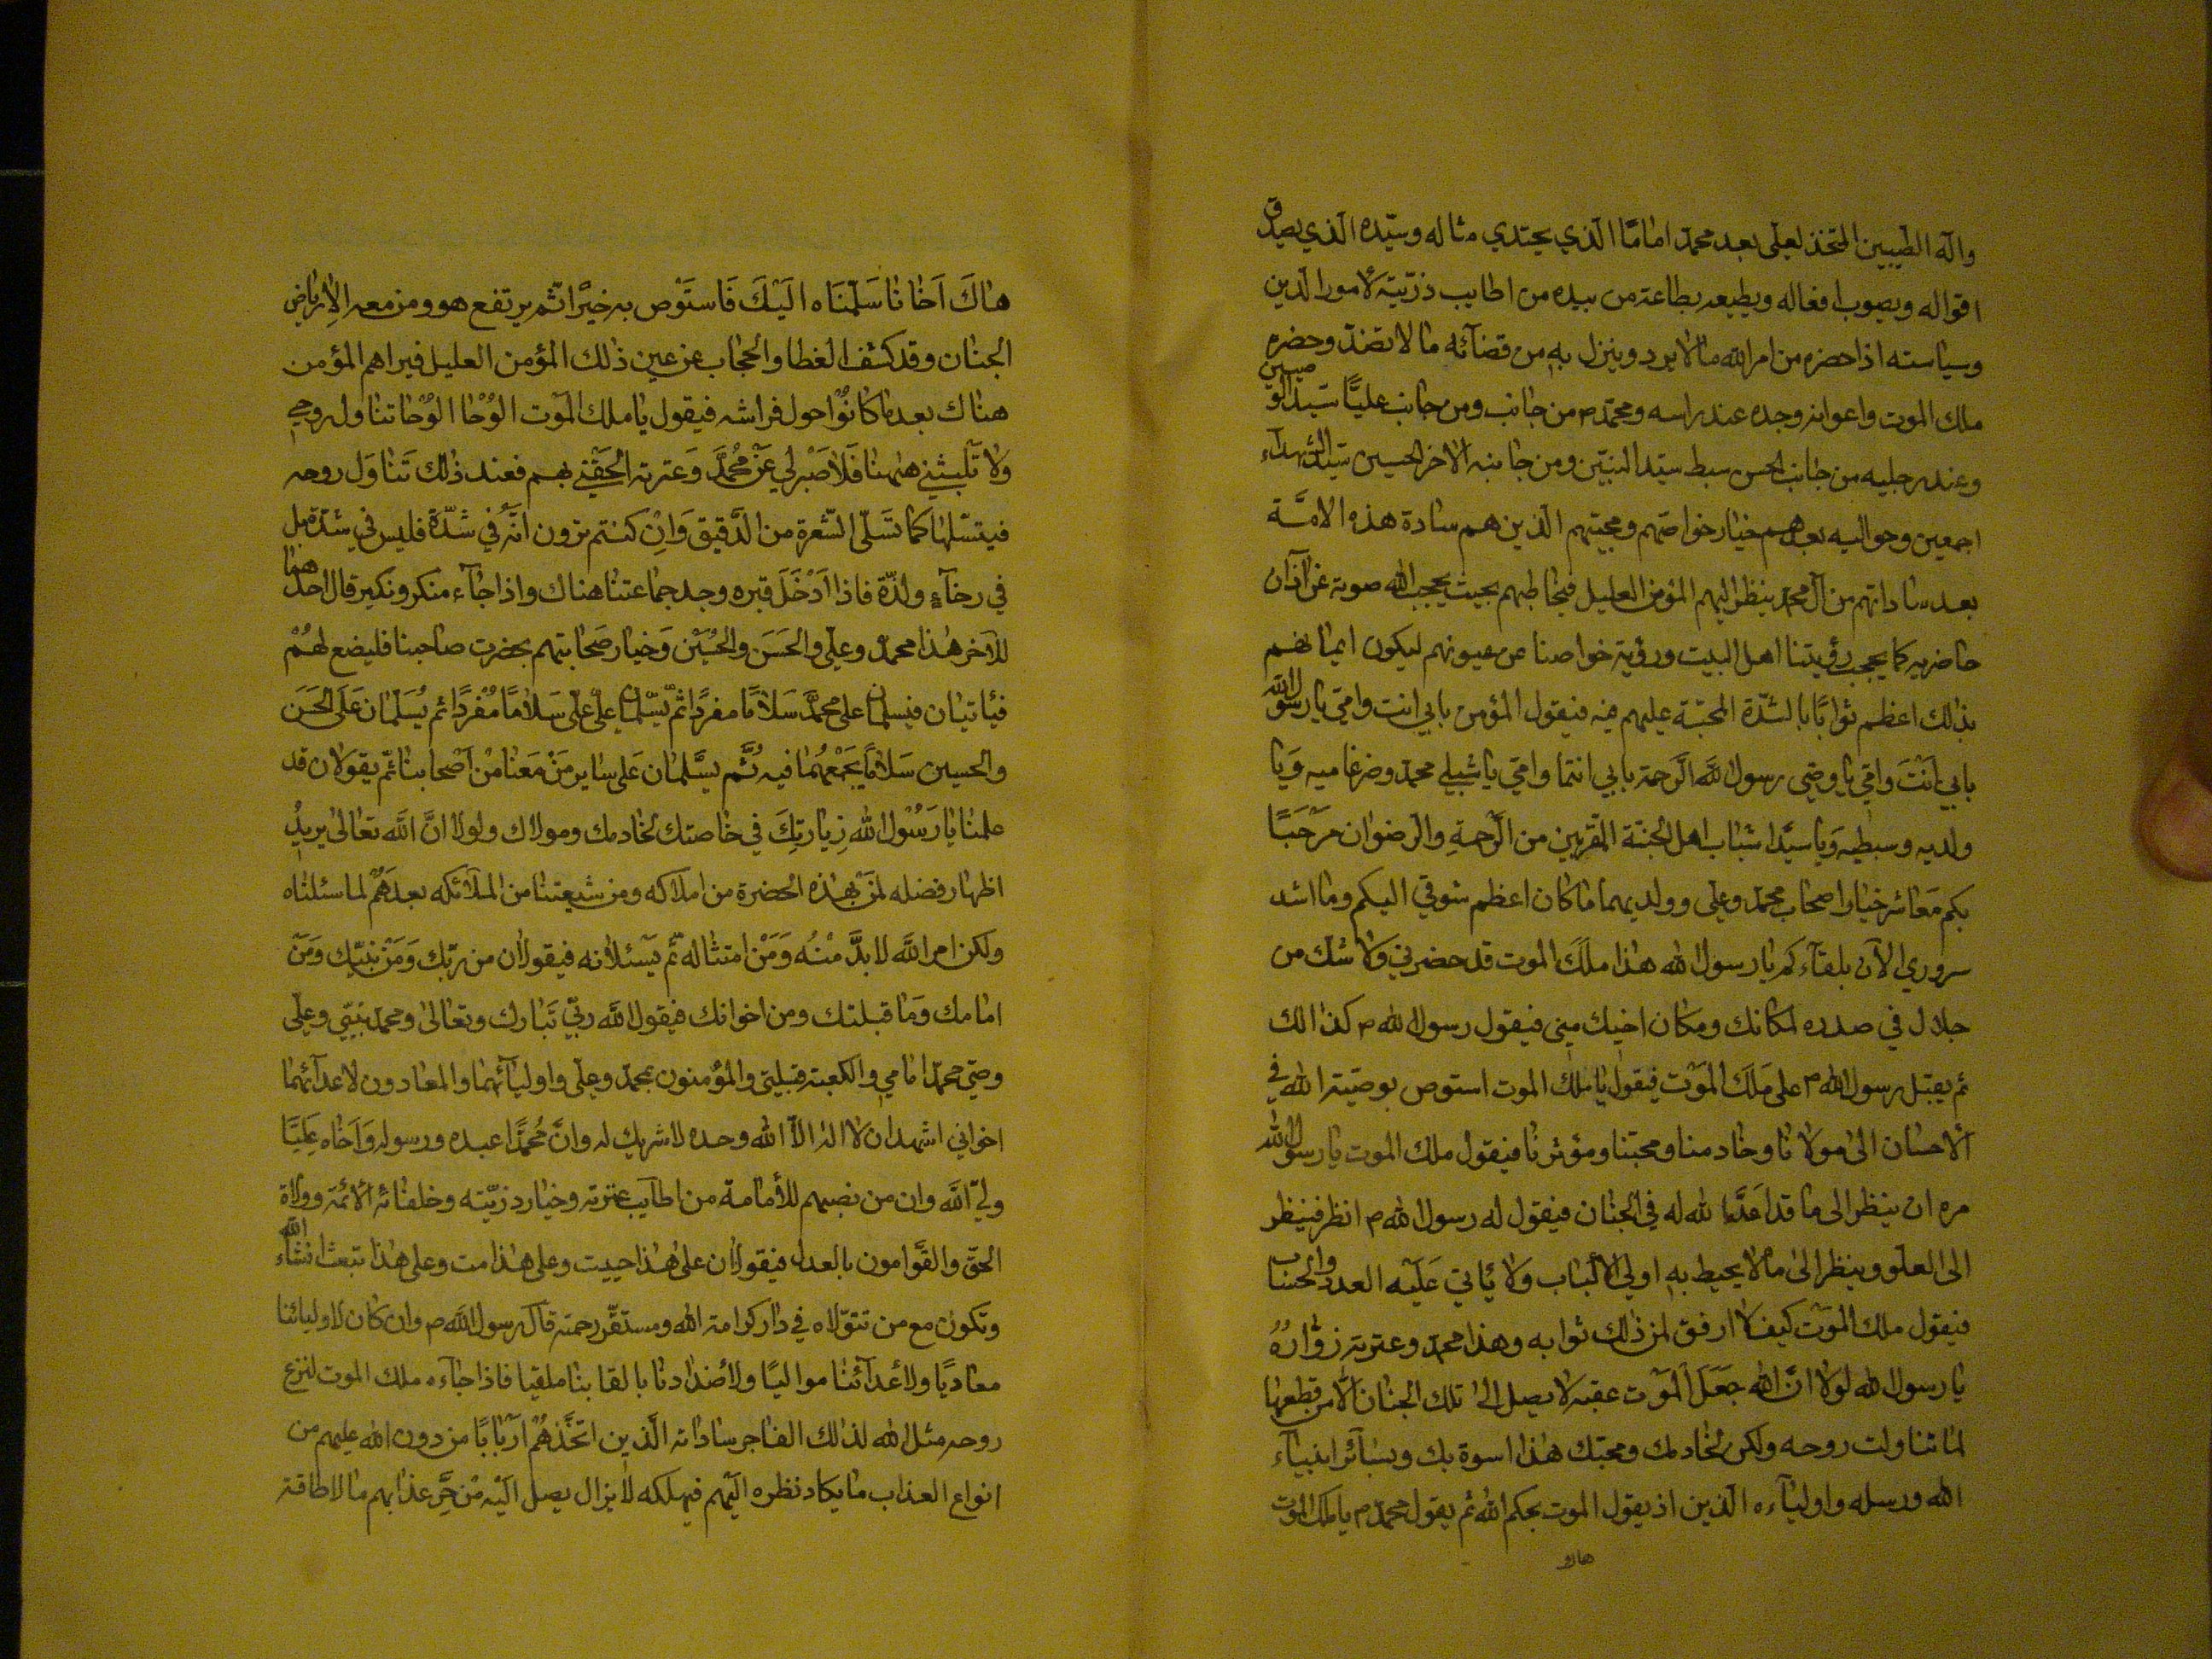 واله الطيبين المتخذ لعلى بعد محمد امامًا الذي يحتذي مثاله وسيّده الذي يصدق
اقواله ويصوب افعاله ويطيعه بطاعة من بيده من اطايب ذرّيّته لامور الدين
وسياسته اذا حضره من امر الله ما لا يرد وينزل به من قضائه ما لا تصد وحضره
ملك الموت واعوانه وجده عند راسه ومحمد م من جانب ومن جانب عليًّا سيّد الوصيين
وعند رجليه من جانب الحسن سبط سيّد النبيّين ومن جانبه الاخر الحسين سيّد الشهداء
اجمعين وحواليه بعدهم خيار خواصّهم ومحبيّهم الذين هم سادة هذه الامّة
بعد ساداتهم من آل محمد ينظر اليهم المؤمن العليل فيخاطبهم بحيث يحجب الله صوته عن آذان
حاضريه كما يحجب رؤيتنا اهل البيت ورؤية خواصنا عن عيونهم ليكون ايمانهم
بذلك اعظم ثوابًا بالشدّة المحنة عليهم فيه فيقول المؤمن بابي انت وامّي يا رسول الله
بابي اَنْتَ وامّي يا وصّي رسول اللَّه الرّحمة بابي انتما وامّي يا شبلي محمد وضرغاميه وَيا
ولديه وسبطيه وَيا سيّدا شباب اهل الجنّة المقرّبين من الرّحمةِ والرضوان مَرْحَبًا
بكم مَعَاشر خيار اصحاب محمد وعلى وولديهما ما كان اعظم شوقي اليكم وما اشد
سروري الآن بلقاءكم يا رسول الله هذا ملَك الموت قد حضرني وَلا شك من
جلال في صدره لمكانك ومكان اخيك مني فيقول رسول الله م كذالك
ثم يقبل رسول الله م على مَلَك المَوْت فيقول يا ملك الموت استوص بوصيّة الله في
الاحسان الى مولانا وخادمنا ومحبّنا ومؤثرنا فيقول ملك الموت يا رسول الله
مره ان ينظر الى ما قد اَعَدَّ الله له في الجنان فيقول له رسول الله م انظر فينظر
الى العلو وينظر الى ما لا يحيط به اولي الالباب وَلا يأتي عَلَيْه العدد والحساب
فيقول ملك الموْت كيف لا ارفق لمن ذلك ثوابه وهذا محمد وعترته زوّارُهُ
يا رسول الله لَوْلا انَّ الله جَعَلَ الْمَوْت عقبة لا يصل الى تلك الجنان الّا من قطعها
لما تناولت روحه ولكن لخادمك ومحبّك هذا اسوة بك وبسائر انبياء
الله ورسله واوليآءه الذين اذيقوا الموت بحكم الله ثم يقول محمد م يا ملَك الموت
هاك
هٰاكَ اَخٰانٰا سَلّمْنَاه الَيْكَ فَاسْتَوْص به خيْرًا ثم يرتفع هو ومن معه الى رياض
الجنان وقد كشف الغطا والحجاب عن عين ذلك المؤمن العليل فيراهم المؤمن
هناك بعد ما كانوْا حول فراشه فيقول يا ملك الْمَوْت الوْحٰا الوْحٰا تناول روحي
وَلا تَلبثني هٰهنا فَلا صَبْر لي عَنْ مُحَمَّد وَعترته الْحِقْني بهم فعند ذلك تَناوَل روحه
فيتسّلها كما تسَلّى الشّعرة من الدَّقيق وَاِنْ كنتم ترون انّه في شدّة فليس في شدّة بل
في رخآء ولذّة فاذا اَدْخَلَ قبره وجد جماعتنا هناك واذا جآء منكر ونكير قال احدهما
للآخر هٰذا محمد وعلي والحَسَن والحُسَيْن وَخيار صَحابتهم بحضرت صاحبنا فليضع لهُمْ
فيأتيان فيسلمان على محمَّد سَلامًا مفردًا ثم يسّلمان على عليّ سَلامًا مُفْردًا ثم يُسَلمان عَلَى الحَسَن
والحسين سَلامًا يَجْمَعهُما فيه ثُم يسَّلمان عَلى ساير مَنْ مَعَنٰا منْ اَصْحابنا ثم يقولان قد
علمنا يا رَسُوْل الله زِيارتِكَ في خاصتك لخادمك ومولاك ولولا انَّ اللَّه تعٰالى يريدُ
اظهار فضله لمن بهٰذه الحضرة من املاكه ومن شيعتنا من الملائكه بعدَهُمْ لما سئلناه
ولكن امر اللَّه لا بدَّ منْهُ وَمَنْ امتثاله ثم يَسْئلانه فيقولان من ربّك وَمَنْ نَبيّك وَمَنْ
امامك وَمَا قبلتك ومن اخوانك فيقول اللَّه ربّي تَبارك وتعٰالى ومحمد نبيّي وعلى
وصّي محمد امامي والكعبة قبلتي والمؤمنون بمحمد وعلي واوليآئهما والمعادون لاعدآئهما
اخواني اشهد ان لا اله الاّ الله وحده لا شريك له وانَّ مُحمَّدًا عبده ورسوله وَاَخاه عِليًّا
وليّ اللَّه وان من نصبهم للأمامة من اطايب عترته وخيار ذريّته وخلفائه الائمّة وولاة
الحقّ والقَوّامون بالعدل فيقولان على هٰذا حييت وعلى هٰذا مت وعلى هٰذا تبعث انشاء الله
وتكون مع من تتوّلاه في دٰار كرامة الله ومستقّر رحمته قال رسول اللَّه م وان كان لاوليائنا
معاديًا ولأعدآئنا مواليًا ولأضدادنا بالقابنا ملقبا فاذا جآءه ملك الموت لنزع
روحه مثل الله لذالك الفاجر ساداته الَّذين اتخَّذهُمْ اَرْبابًا من دون الله عليهم من
انواع العذاب ما يكاد نظره اليْهم فيهلكه لا يزال يصل الَيْه منْ حَرّ عذابهم ما لا طاقة